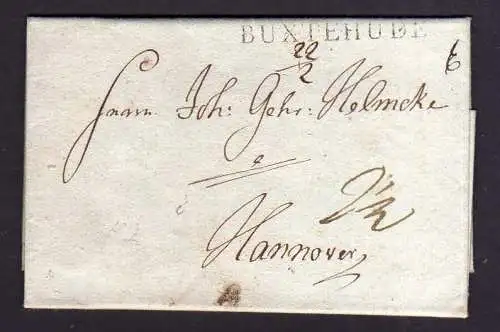 BUXTEHUDE
22/2
6
Herrn Joh: Gehr: Helmcke
a
Hannover
2 1/2